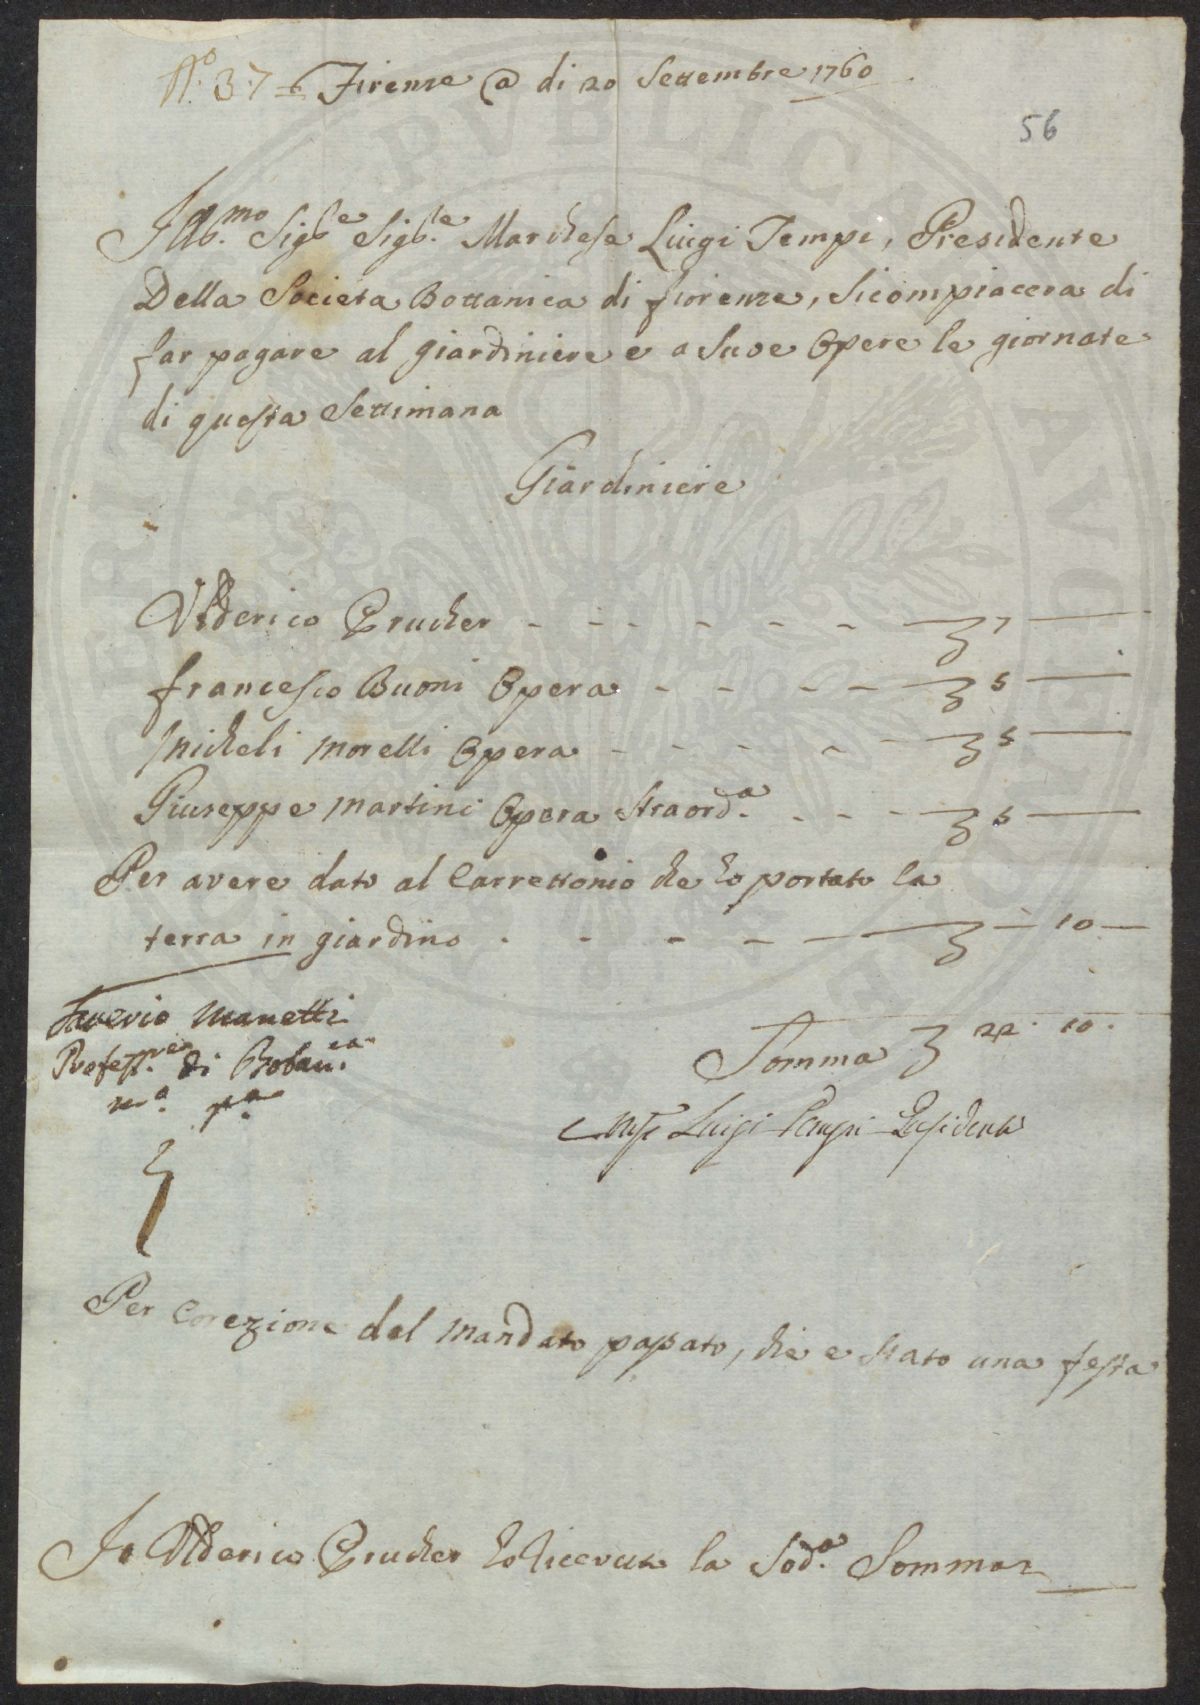 N.º 37 Firenze @ di 20 Settembre 1760
56
Illb.mo Sigb.re Sigb.re Marchese Luigi Tempi, Presidente
Della Societa Bottanica di fiorenze, Sicompiacera di
far pagare al giardiniere e a Suoe Opere le giornate
di questa Settimana
Giardiniere
Ulderico Prucher - - - - - - 7 —
francesco Buoni Opera - - - - 5 —
Micheli Morelli Opera - - - - - 5 —
Giuseppe Martini Opera Straord.a - - - - 5 —
Per avere dato al Carrettonio che ho portato la
terra in giardino - - - - - — 10 —
Saverio Manetti
Profess.re di Botan.ca
m.o p.a
Somma 22. 10.
Mse Luigi Tempi Presidente
Per Corezione del Mandato passato, che e stato una festa
Io Ulderico Prucher ho ricevuto la Sod.a Somma